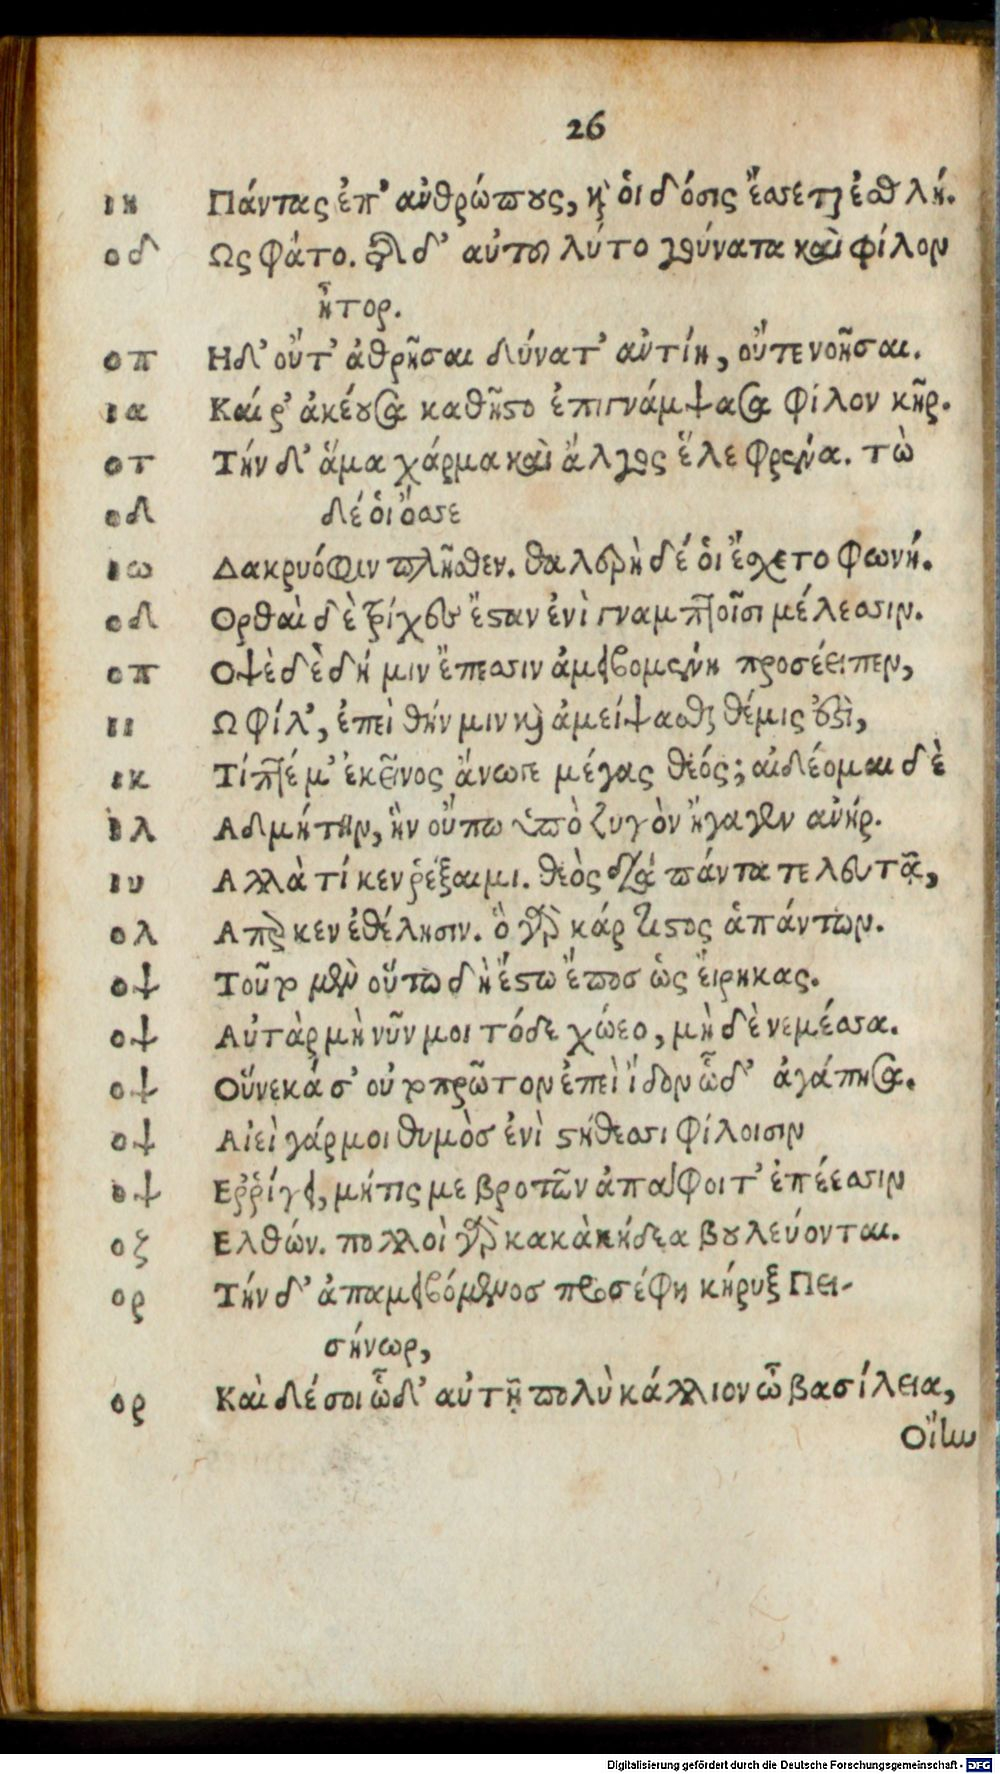 26
ιη Πάντας ἐπ' ἀνθρώπους, καὶ ὁι δόσις ἔσσεται ἐσθλή.
οδ Ως φάτο. τῆς δ' αὐτοῦ λύτο γούνατα καὶ φίλον
ἦτορ.
οπ Ηδ' οὔτ' ἀθρῆσαι δύνατ' αὐτίη, οὔτε νοῆσαι.
ια Καί ρ' ἀκέουσα καθῆστο ἐπιγνάμψασα φίλον κῆρ.
οτ Τὴν δ' ἅμα χάρμα καὶ ἄλγος ἕλε φρένα. τὼ
οδ δέ ὁι ὄσσε
ιω Δακρυόφιν πλῆσθεν. θαλερὴ δέ ὁι ἔσχετο φωνή.
οδ Ορθαὶ δὲ τρίχες ἔσταν ἐνὶ γναμπτοῖσι μέλεσσιν.
οπ Οψὲ δὲ δή μιν ἔπεσσιν ἀμειβομένη προσέειπεν,
ιι Ω φίλ', ἐπεὶ θήν μιν καὶ ἀμείψασθαι θέμις ἐστὶ,
ικ Τίπτέ μ' ἐκεῖνος ἄνωγε μέγας θεός; αἰδέομαι δὲ
ιλ Αδμήτην, ἣν οὔπω ὑπὸ ζυγὸν ἤγαγεν ἀνήρ.
ιυ Αλλὰ τί κεν ῥέξαιμι. θεὸς διὰ πάντα τελευτᾷ,
ολ Αππ κεν ἐθέλησιν. ὃ γὰρ κάρτιστος ἁπάντων.
οψ Τοῦτον μὲν οὕτω δὴ ἔστω ἔπος ὡς ἔιρηκας.
οψ Αὐτὰρ μὴ νῦν μοι τόδε χώεο, μὴ δὲ νεμέσσα.
οψ Οὕνεκά σ' οὐ πρῶτον ἐπεὶ ἴδον ὧδ' ἀγάπησα.
οψ Αἰεὶ γάρ μοι θυμὸσ ἐνὶ στήθεσσι φίλοισιν
οψ Ερῥίγει, μήτις με βροτῶν ἀπαφοιτ' ἐπέεσσιν
οζ Ελθών. πολλοὶ γὰρ κακὰ κήδεα βουλεύονται.
ορ Τὴν δ' ἀπαμειβόμενοσ προσέφη κήρυξ Πει-
σήνωρ,
ορ Καὶ δέ σοι ὧδ' αὐτῇ πολὺ κάλλιον ὦ βασίλεια,
Οἵην
Digitalisierung gefördert durch die Deutsche Forschungsgemeinschaft - DFG